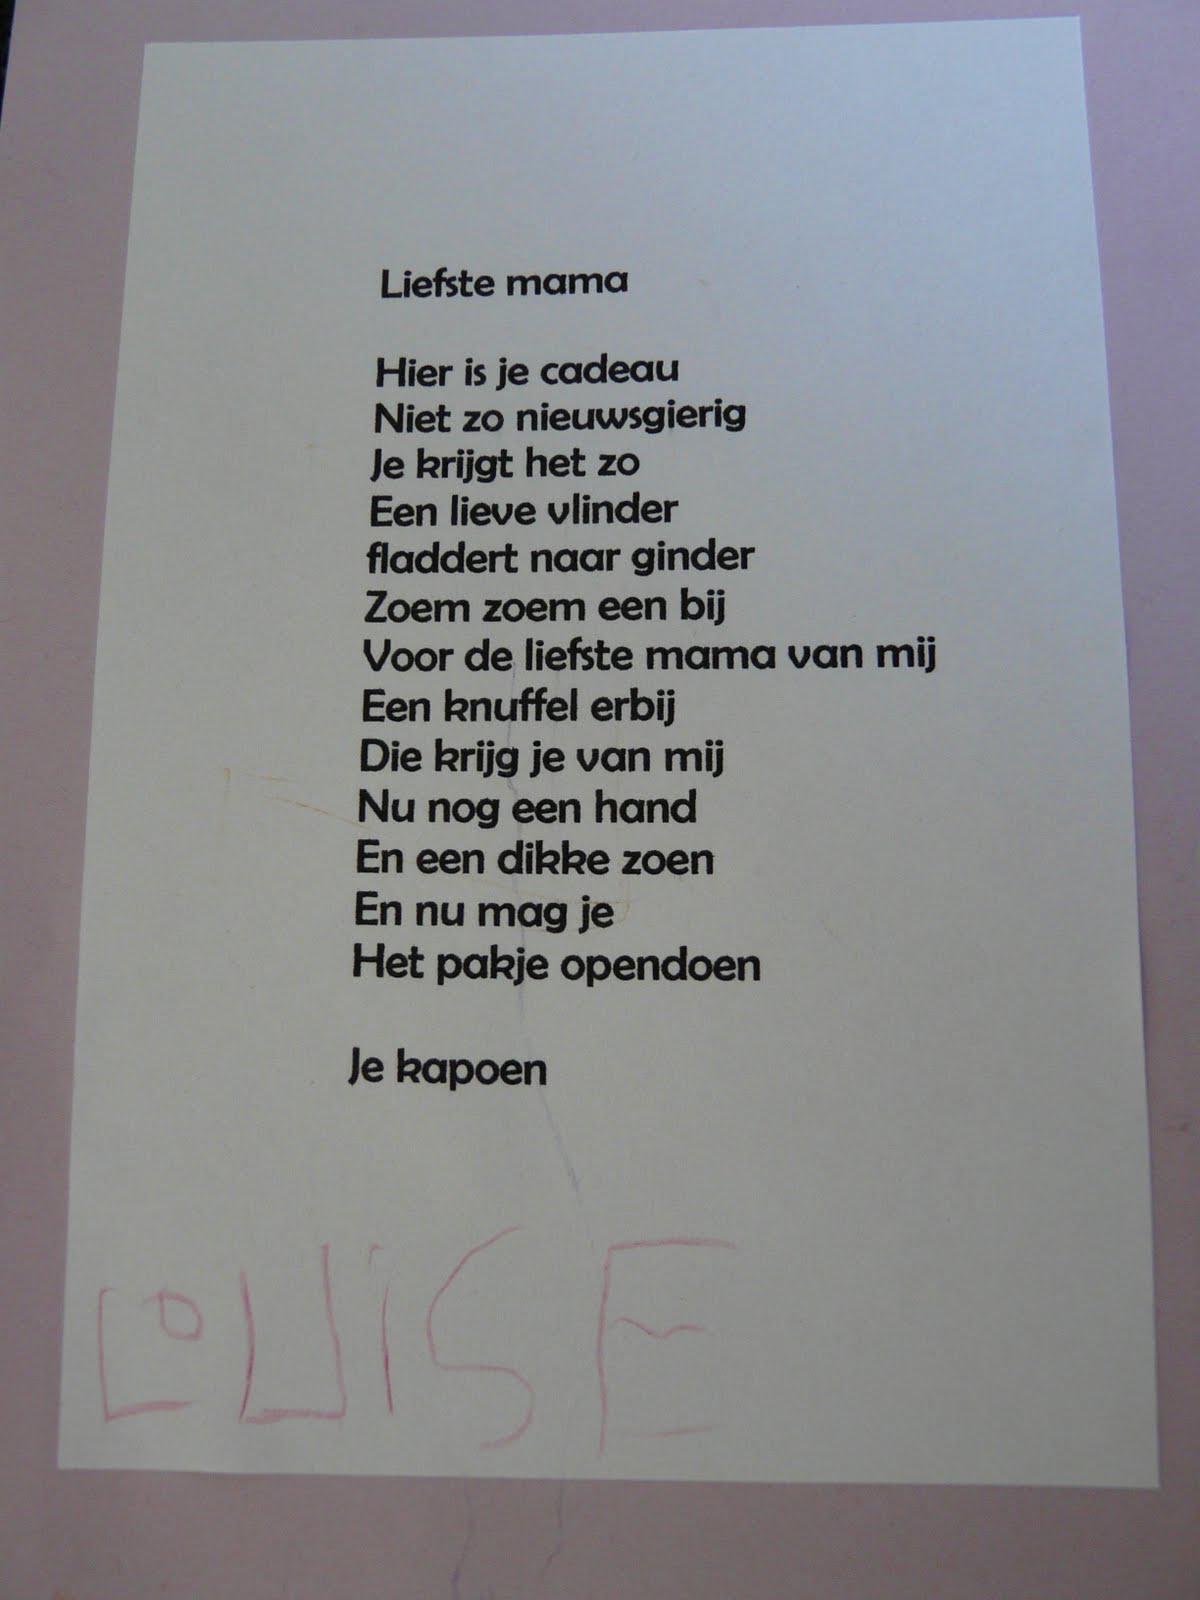 Liefste mama
Hier is je cadeau
Niet zo nieuwsgierig
Je krijgt het zo
Een lieve vlinder
fladdert naar ginder
Zoem zoem een bij
Voor de liefste mama van mij
Een knuffel erbij
Die krijg je van mij
Nu nog een hand
En een dikke zoen
En nu mag je
Het pakje opendoen
Je kapoen
LOUISE